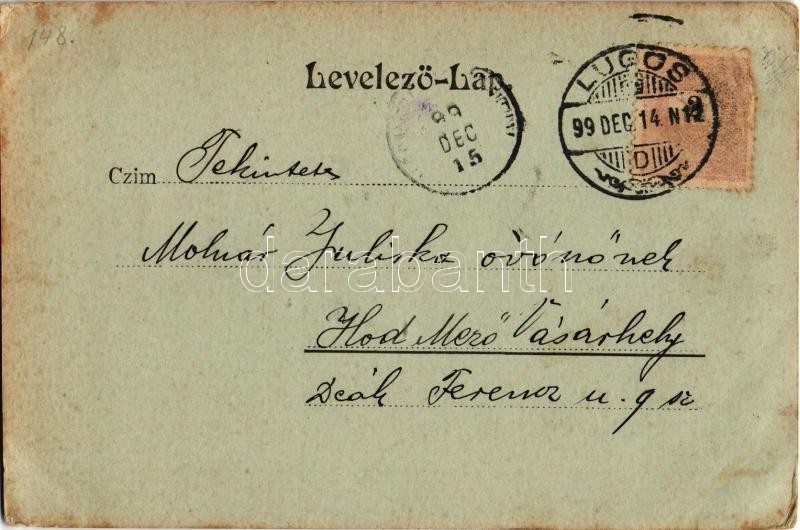 148.
Levelező-Lap.
LUGOS
99 DEC. 14. N12
D
99
DEC
15
Czim Tekintetes
Molnár Juliska óvónőnek
darabanth
Hod Mező Vásárhely
Deák Ferencz u. 9 sz